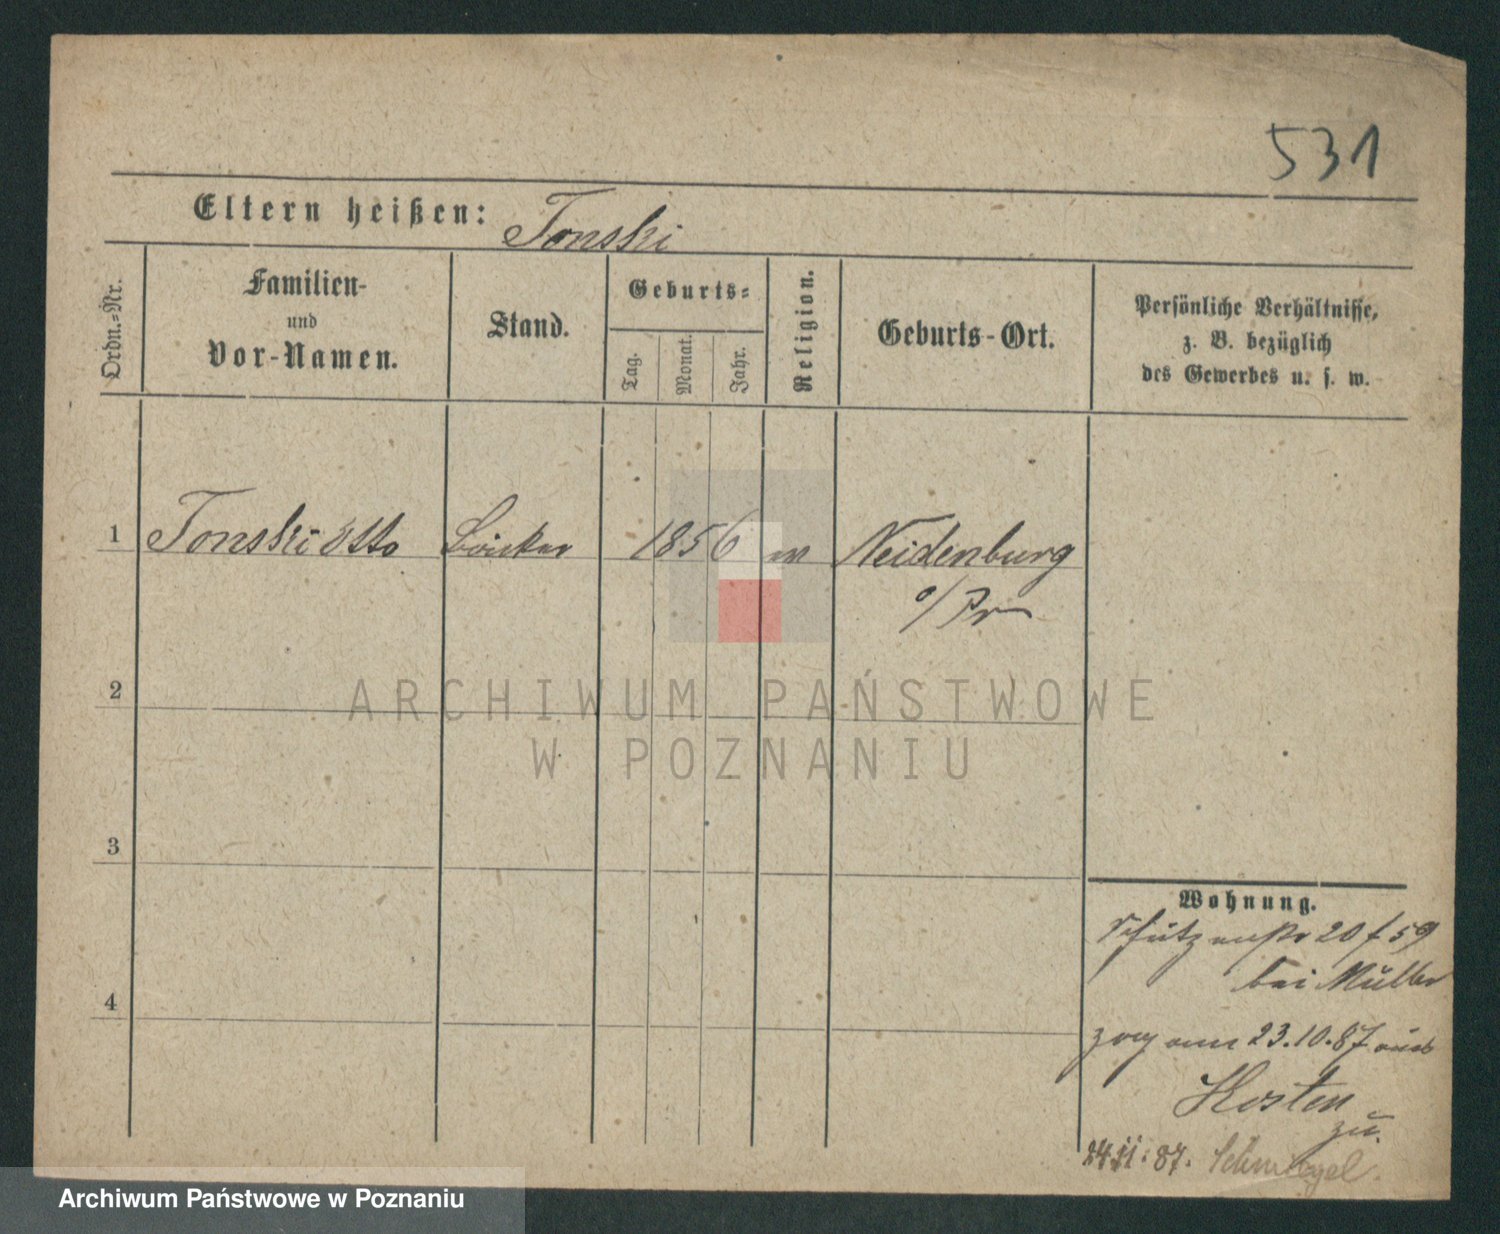 531
Eltern heißen: Tonski
Ordn.=Nr.
Familien-
und
Vor-Namen.
Stand.
Geburts=
Tag.
Monat.
Jahr.
Religion.
Geburts-Ort.
Persönliche Verhältnisse,
z. B. bezüglich
des Gewerbes u. s. w.
1 Tonski Otto Bäcker 1856 Neidenburg
o/Pr
2
ARCHIWUM PAŃSTWOWE
W POZNANIU
3
4
Wohnung.
Schützenstr 20 f 59
bei Müller
zog am 23.10.87 aus
Kosten
zu.
24.11.87. Schmiegel.
Archiwum Państwowe w Poznaniu